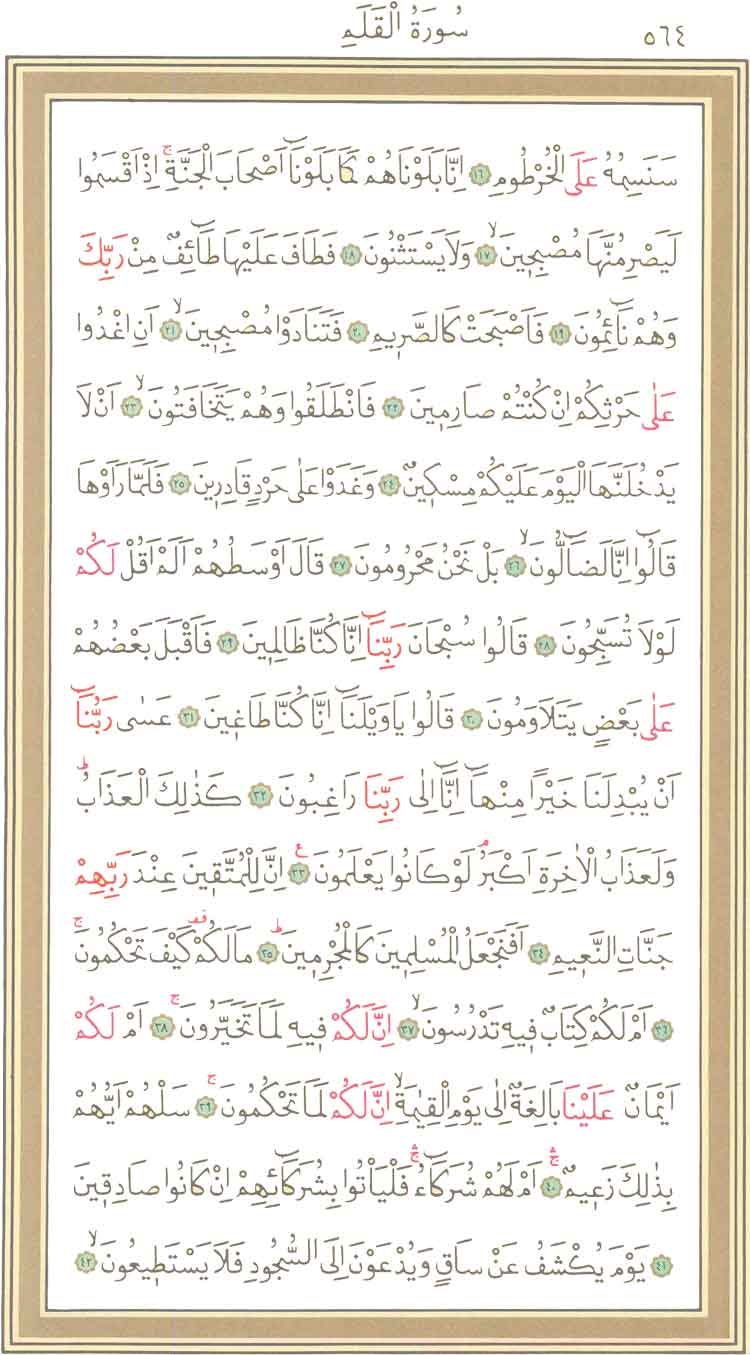 سُورَةُ الْقَلَمِ ٥٦٤
سَنَسِمُهُ عَلَى الْخُرْطُومِ ﴿١٦﴾ اِنَّا بَلَوْنَاهُمْ كَمَا بَلَوْنَٓا اَصْحَابَ الْجَنَّةِۚ اِذْ اَقْسَمُوا
لَيَصْرِمُنَّهَا مُصْبِحٖينَۙ ﴿١٧﴾ وَلَا يَسْتَثْنُونَ ﴿١٨﴾ فَطَافَ عَلَيْهَا طَٓائِفٌ مِنْ رَبِّكَ
وَهُمْ نَٓائِمُونَ ﴿١٩﴾ فَاَصْبَحَتْ كَالصَّرٖيمِ ﴿٢٠﴾ فَتَنَادَوْا مُصْبِحٖينَۙ ﴿٢١﴾ اَنِ اغْدُوا
عَلٰى حَرْثِكُمْ اِنْ كُنْتُمْ صَارِمٖينَ ﴿٢٢﴾ فَانْطَلَقُوا وَهُمْ يَتَخَافَتُونَۙ ﴿٢٣﴾ اَنْ لَا
يَدْخُلَنَّهَا الْيَوْمَ عَلَيْكُمْ مِسْكٖينٌ ﴿٢٤﴾ وَغَدَوْا عَلٰى حَرْدٍ قَادِرٖينَ ﴿٢٥﴾ فَلَمَّا رَاَوْهَا
قَالُٓوا اِنَّا لَضَٓالُّونَۙ ﴿٢٦﴾ بَلْ نَحْنُ مَحْرُومُونَ ﴿٢٧﴾ قَالَ اَوْسَطُهُمْ اَلَمْ اَقُلْ لَكُمْ
لَوْلَا تُسَبِّحُونَ ﴿٢٨﴾ قَالُوا سُبْحَانَ رَبِّنَٓا اِنَّا كُنَّا ظَالِمٖينَ ﴿٢٩﴾ فَاَقْبَلَ بَعْضُهُمْ
عَلٰى بَعْضٍ يَتَلَاوَمُونَ ﴿٣٠﴾ قَالُوا يَا وَيْلَنَٓا اِنَّا كُنَّا طَاغٖينَ ﴿٣١﴾ عَسٰى رَبُّنَٓا
اَنْ يُبْدِلَنَا خَيْرًا مِنْهَٓا اِنَّٓا اِلٰى رَبِّنَا رَاغِبُونَ ﴿٣٢﴾ كَذٰلِكَ الْعَذَابُؕ
وَلَعَذَابُ الْاٰخِرَةِ اَكْبَرُۢ لَوْ كَانُوا يَعْلَمُونَ ﴿٣٣﴾ اِنَّ لِلْمُتَّقٖينَ عِنْدَ رَبِّهِمْ
جَنَّاتِ النَّعٖيمِ ﴿٣٤﴾ اَفَنَجْعَلُ الْمُسْلِمٖينَ كَالْمُجْرِمٖينَؕ ﴿٣٥﴾ مَا لَكُمْ۠ كَيْفَ تَحْكُمُونَۚ
﴿٣٦﴾ اَمْ لَكُمْ كِتَابٌ فٖيهِ تَدْرُسُونَۙ ﴿٣٧﴾ اِنَّ لَكُمْ فٖيهِ لَمَا تَخَيَّرُونَۚ ﴿٣٨﴾ اَمْ لَكُمْ
اَيْمَانٌ عَلَيْنَا بَالِغَةٌ اِلٰى يَوْمِ الْقِيٰمَةِۙ اِنَّ لَكُمْ لَمَا تَحْكُمُونَۚ ﴿٣٩﴾ سَلْهُمْ اَيُّهُمْ
بِذٰلِكَ زَعٖيمٌۚۛ ﴿٤٠﴾ اَمْ لَهُمْ شُرَكَٓاءُۚۛ فَلْيَأْتُوا بِشُرَكَٓائِهِمْ اِنْ كَانُوا صَادِقٖينَ
﴿٤١﴾ يَوْمَ يُكْشَفُ عَنْ سَاقٍ وَيُدْعَوْنَ اِلَى السُّجُودِ فَلَا يَسْتَطٖيعُونَۙ ﴿٤٢﴾